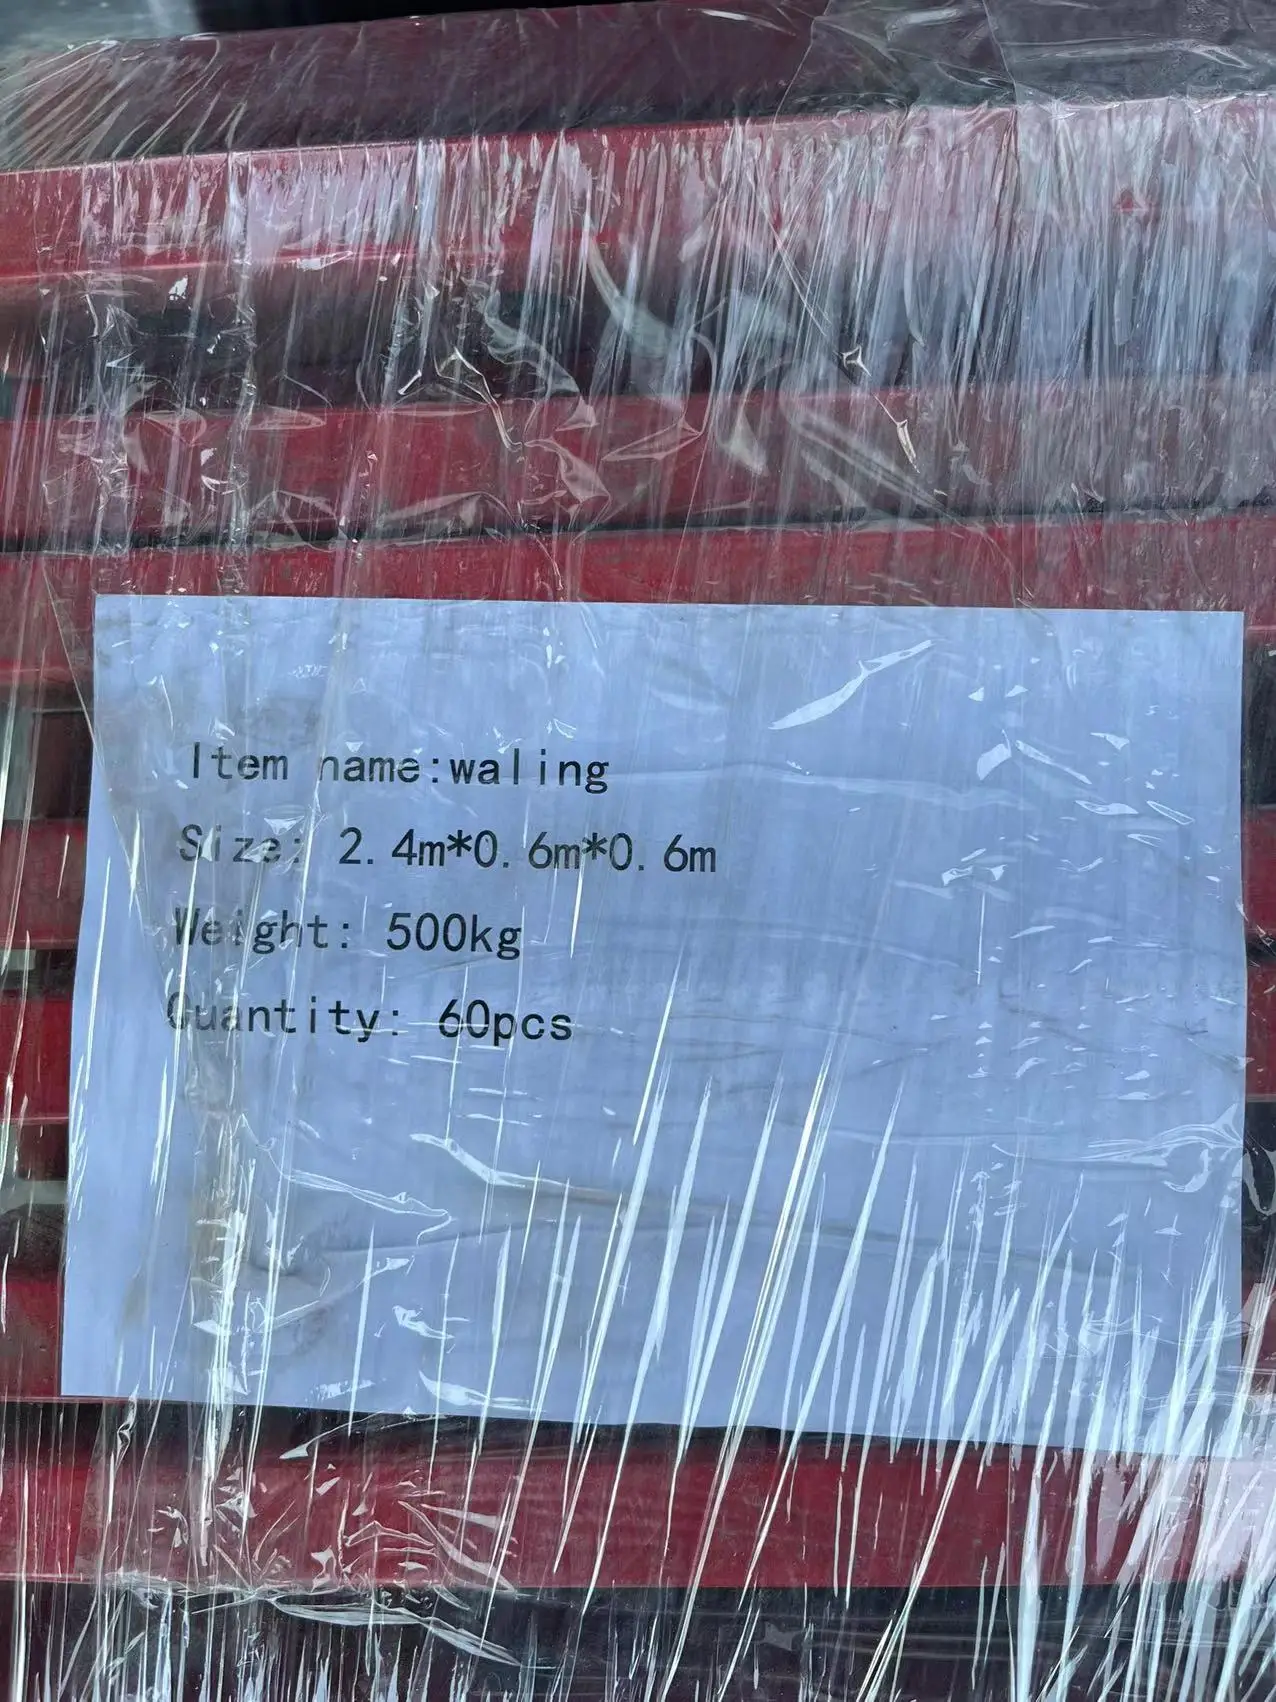 Item name:waling
Size: 2.4m*0.6m*0.6m
Weight: 500kg
Quantity: 60pcs